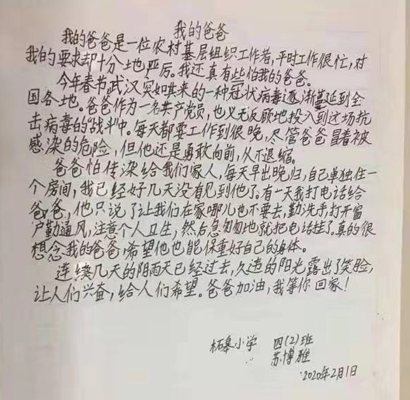 我的爸爸
我的爸爸是一位农村基层组织工作者,平时工作很忙,对
我的要求却十分地严厉。我还真有些怕我的爸爸。
今年春节武汉突如其来的一种冠状病毒逐渐蔓延到全
国各地。爸爸作为一名共产党员,也义无反顾地投入到这场抗
击病毒的“战斗”中。每天都要工作到很晚,尽管爸爸冒着被
感染的危险,但他还是勇敢向前,从不退缩。
爸爸怕传染给我们家人,每天早出晚归,自己单独住一
个房间,我已经好几天没有见到他了。有一天我打电话给
爸爸,他只说了让我们在家哪儿也不要去,勤洗手,打开窗
户勤通风,注意个人卫生,然后急匆匆地就把电话挂了。真的很
想念我的爸爸,希望他也能保重好自己的身体。
连续几天的阴雨天已经过去,久违的阳光露出了笑脸,
让人们兴奋,给人们希望。爸爸加油,我等你回家!
柘皋小学 四(2)班
苏博雅
2020年2月1